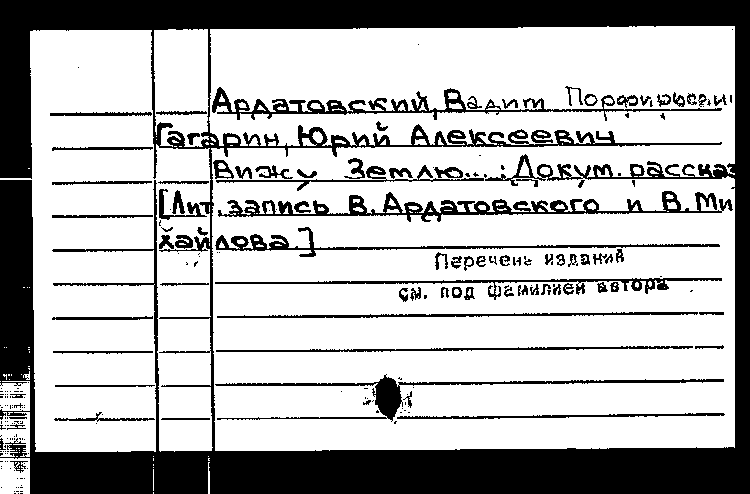 Ардатовский, Вадим
Гагарин, Юрий Алексеевич
Вижу Землю... : Докум. рассказ
[Лит. запись В. Ардатовского и В. Ми
хайлова.]
Перечень изданий
см. под фамилией автора